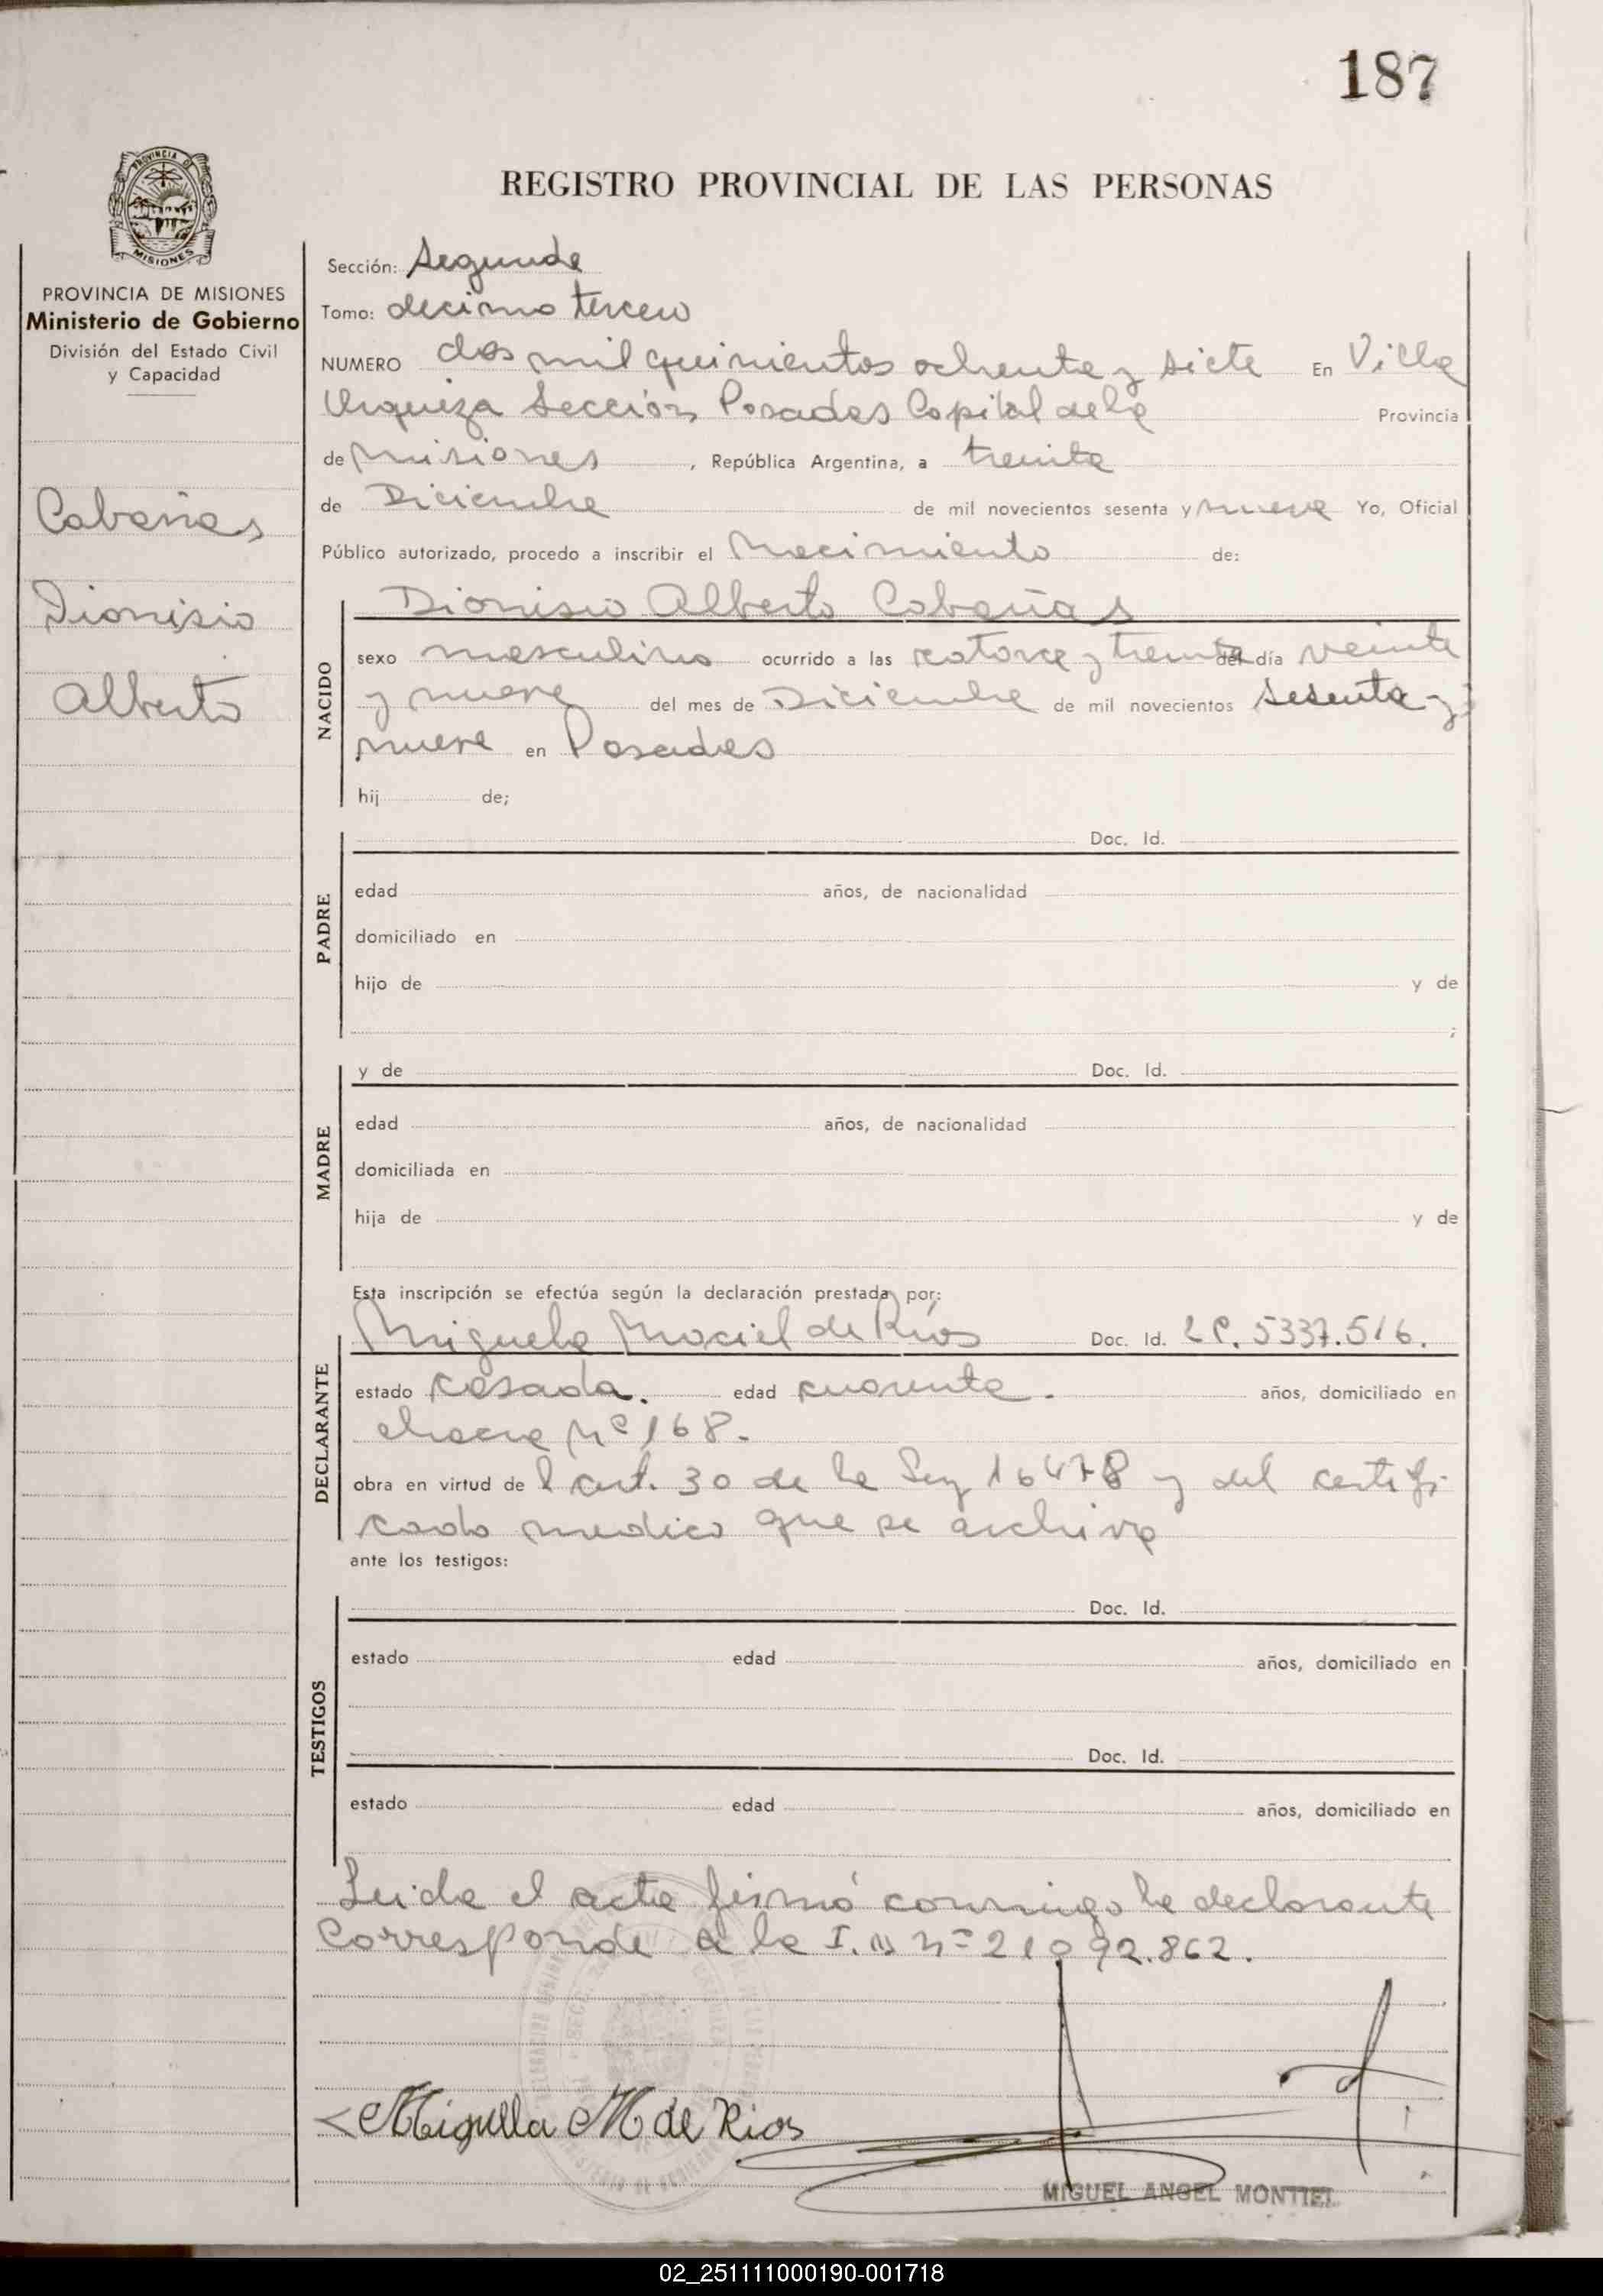 187
PROVINCIA DE
MISIONES
PROVINCIA DE MISIONES
Ministerio de Gobierno
División del Estado Civil
y Capacidad
Cabañas
Dionisio
Alberto
REGISTRO PROVINCIAL DE LAS PERSONAS
Sección: Segunda
Tomo: decimo tercero
NUMERO dos mil quinientos ochenta y siete En Villa
Urquiza Sección Posadas Capital de la Provincia
de Misiones, República Argentina, a treinta
de Diciembre de mil novecientos sesenta y nueve Yo, Oficial
Público autorizado, procedo a inscribir el Nacimiento de:
NACIDO
Dionisio Alberto Cabañas
sexo masculino ocurrido a las catorce y treinta del día veinte
y nueve del mes de Diciembre de mil novecientos sesenta y
nueve en Posadas
hij de;
PADRE
Doc. Id.
edad años, de nacionalidad
domiciliado en
hijo de y de
;
MADRE
y de Doc. Id.
edad años, de nacionalidad
domiciliada en
hija de y de
Esta inscripción se efectúa según la declaración prestada por:
DECLARANTE
Miguela Maciel de Ríos Doc. Id. LC. 5337.516.
estado casada. edad cuarenta. años, domiciliado en
chacra Nº 168.
obra en virtud del art. 30 de la Ley 16478 y del certifi
cado medico que se archiva
ante los testigos:
TESTIGOS
Doc. Id.
estado edad años, domiciliado en
Doc. Id.
estado edad años, domiciliado en
Leida el acta firmó conmigo la declarante
Corresponde a la I. N nº 21092.862.
Miguella M de Rios
MIGUEL ANGEL MONTIEL
02_251111000190-001718